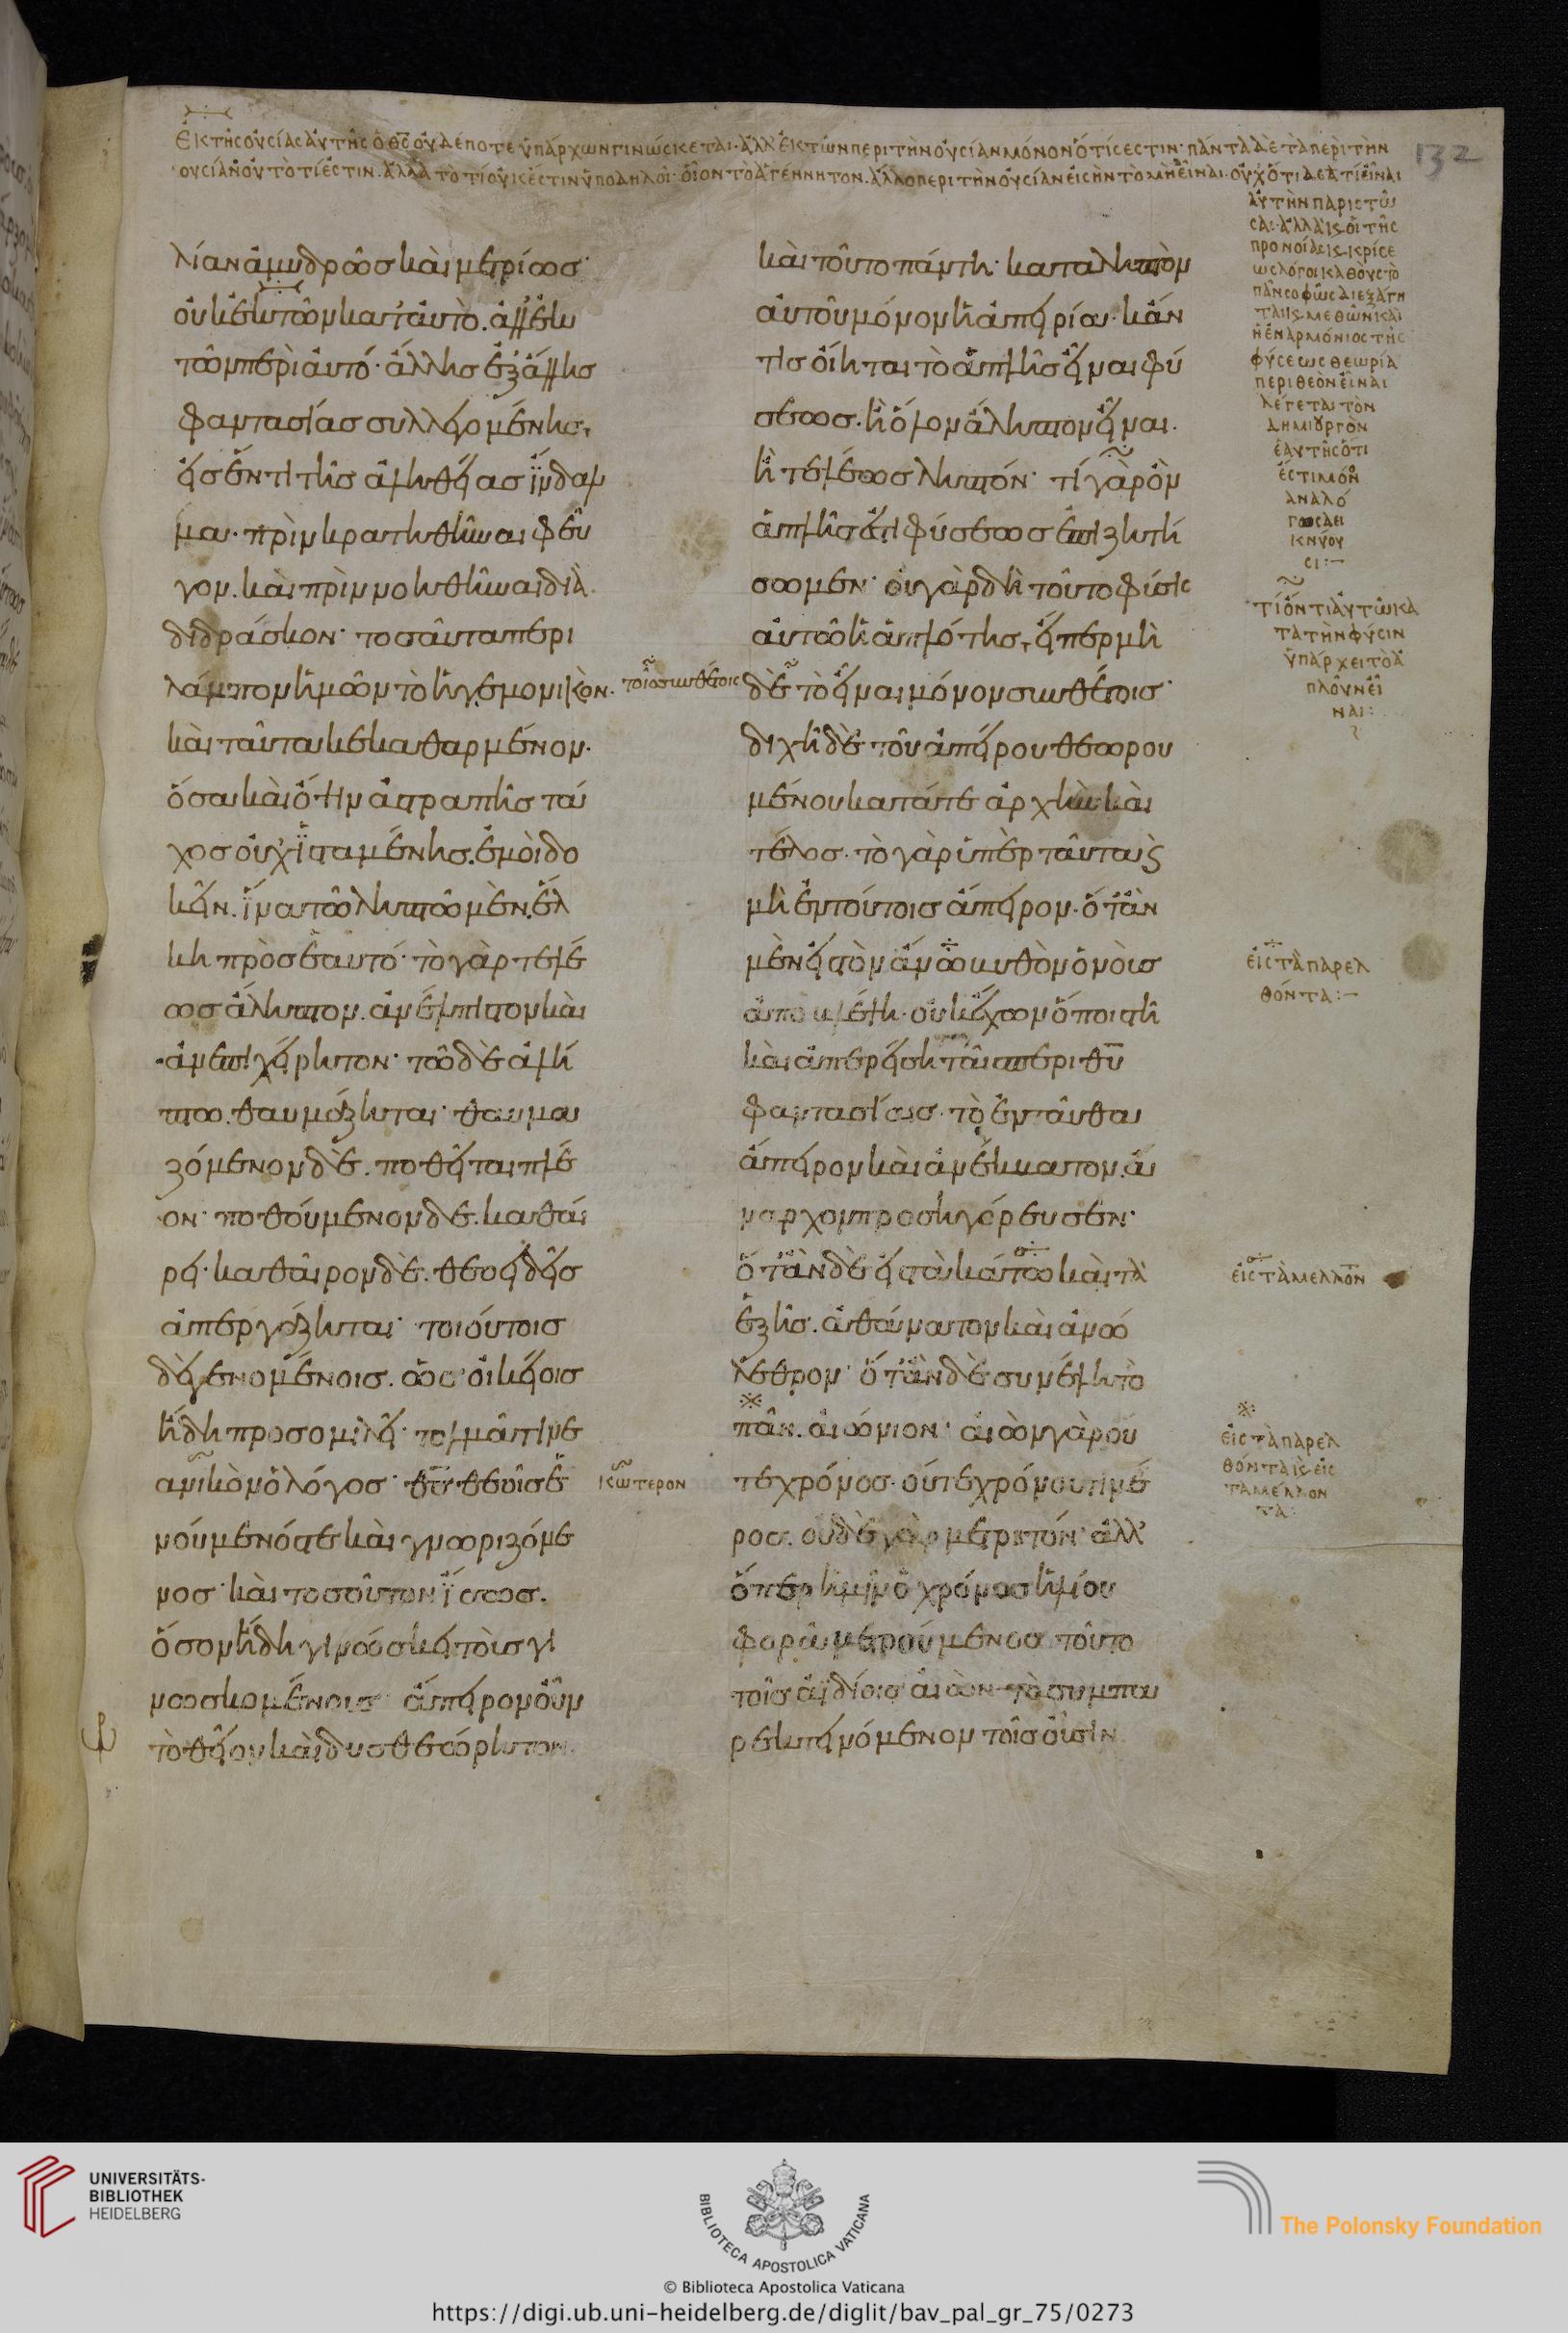 Ἐκ τῆς οὐσίας αὐτῆς ὁ θ̅ς̅ οὐδέποτε ὑπάρχων γινώσκεται· ἀλλ' ἐκ τῶν περὶ τὴν οὐσίαν μόνον ὅτι ἐστιν· πάντα δὲ τὰ περὶ τὴν
οὐσίαν οὐ τὸ τί ἐστιν. ἀλλὰ τὸ τί οὐκ ἐστιν ὑποδηλοῖ· οἷον τὸ ἀγέννητον. ἄλλο περὶ τὴν οὐσίαν
132
λίαν ἀμυδρῶς καὶ μετρίως·
οὐκ ἐκ τῶν κατ' αὐτὸ. ἀλλ' ἐκ
τῶν περὶ αὐτό· ἄλλης ἐξ ἄλλης
φαντασίας συλλεγομένης,
εἰς ἕν τι τῆς ἀληθείας ἴνδαλ
μα. πρὶν κρατηθῆναι φεῦ
γον. καὶ πρὶν νοηθῆναι δια
διδράσκον· τοσαῦτα περι
λάμπον ἡμῶν τὸ ἡγεμονικὸν.
καὶ ταῦτα κεκαθαρμένον.
ὅσα καὶ ὄψιν ἀστραπῆς τά
χος οὐχ ἱσταμένης. ἐμοὶ δο
κεῖν. ἵνα τῶ ληπτῶ μὲν. ἕλ
κη πρὸς ἑαυτό· τὸ γὰρ τελέ
ως ἄληπτον. ἀνέλπιστον καὶ
ἀνεπιχείρητον· τῶ δὲ ἀλή
πτω. θαυμάζηται· θαυμα
ζόμενον δὲ. ποθεῖται πλέ
ον· ποθούμενον δὲ. καθαί
ρει· καθαῖρον δὲ. θεοειδεῖς
ἀπεργάζηται· τοιούτοις
δὲ γενομένοις. ὡς οἰκείοις
ἤδη προσομιλῆ· τολμᾶ τι νε
ανικὸν ὁ λόγος· θ̅ς̅ θεοῖς ἑ
νούμενός τε καὶ γνωριζόμε
νος· καὶ τοσοῦτον ἴσως.
ὅσον ἤδη γινώσκει τοὺς γι
νωσκομένους· ἄπειρον οὖν
τὸ θεῖον καὶ δυσθεώρητον.
τοῖς συνθέτοις
κώτερον
καὶ τοῦτο πάντη· καταληπτὸν
αὐτοῦ μόνον ἡ ἀπειρία· κἄν
τις οἴηται τὸ ἁπλῆς εἶναι φύ
σεως. ἢ ὅλον ἄληπτον εἶναι.
ἢ τελέως ληπτόν· τί γὰρ ὂν
ἁπλῆς ἐστι φύσεως ἐπιζητή
σωμεν· οὐ γὰρ δὴ τοῦτο φύσις
αὐτῶ ἡ ἁπλότης, εἴπερ μὴ
δὲ τὸ εἶναι μόνον συνθέτοις·
διχῆ δὲ τοῦ ἀπείρου θεωρου
μένου κατά τε ἀρχὴν καὶ
τέλος. τὸ γὰρ ὑπὲρ ταῦτα ϗ
μὴ ἐν τούτοις ἄπειρον. ὅταν
μὲν εἰς τὸν ἄνω βυθὸν ὁ νοῦς
ἀποβλέψη. οὐκ ἔχων ὅποι στῆ
καὶ ἀπερείσηται ταῖς περὶ θ̅υ̅
φαντασίαις. τὸ ἐνταῦθα
ἄπειρον καὶ ἀνέκβατον. ἄ
ναρχον προσηγόρευσεν·
ὅταν δὲ εἰς τὰ κάτω καὶ τὰ
ἑξῆς. ἀθάνατον καὶ ἀνώ
λεθρον· ὅταν δὲ συνέλη τὸ
πᾶν. αἰώνιον· αἰὼν γὰρ οὔ
τε χρόνος. οὔτε χρόνου τι μέ
ρος. οὐδὲ γὰρ μετρητόν· ἀλλ'
ὅπερ ἡμῖν ὁ χρόνος ἡλίου
φορᾶ μετρούμενος· τοῦτο
τοῖς ἀϊδίοις αἰὼν τὸ συμπα
ρεκτεινόμενον τοῖς οὖσιν
αὐτὴν παριστῶ
σαι· ἀλλὰ ϗ οἱ τῆς
προνοίας ϗ κρίσε
ως λόγοι καθ' οὓς τὸ
πᾶν σοφῶς διεξάγε
ται ϗ μεθ' ὧν καὶ
ἡ ἐναρμόνιος τῆς
φύσεως θεωρία
περὶ θεὸν εἶναι
λέγεται τὸν
δημιουργὸν
ἑαυτῆς ὅτι
ἔστι μόνον
ἀναλό
γως δει
κνύου
σι:–
τί ὄντι αὐτῶ κα
τὰ τὴν φύσιν
ὑπάρχει τὸ ἁ
πλοῦν εἶ
ναι:
εἰς τὰ παρελ
θόντα:–
εἰς τὰ μέλλοντα
εἰς τὰ παρελ
θόντα ϗ εἰς
τὰ μέλλον
τα:
UNIVERSITÄTS-
BIBLIOTHEK
HEIDELBERG
BIBLIOTECA APOSTOLICA VATICANA
© Biblioteca Apostolica Vaticana
The Polonsky Foundation
https://digi.ub.uni-heidelberg.de/diglit/bav_pal_gr_75/0273